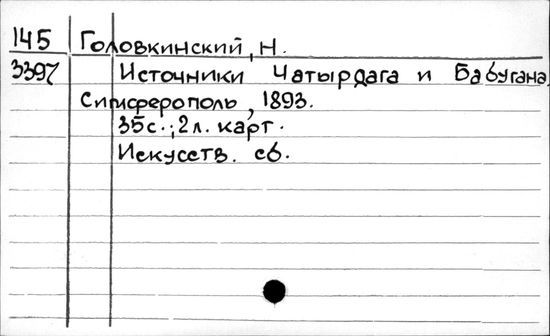 145 Головкинский, Н.
3397 Источники Чатырдага и Бабугана.
Симферополь, 1893.
35с.; 2л. карт.
Искусств. сб.